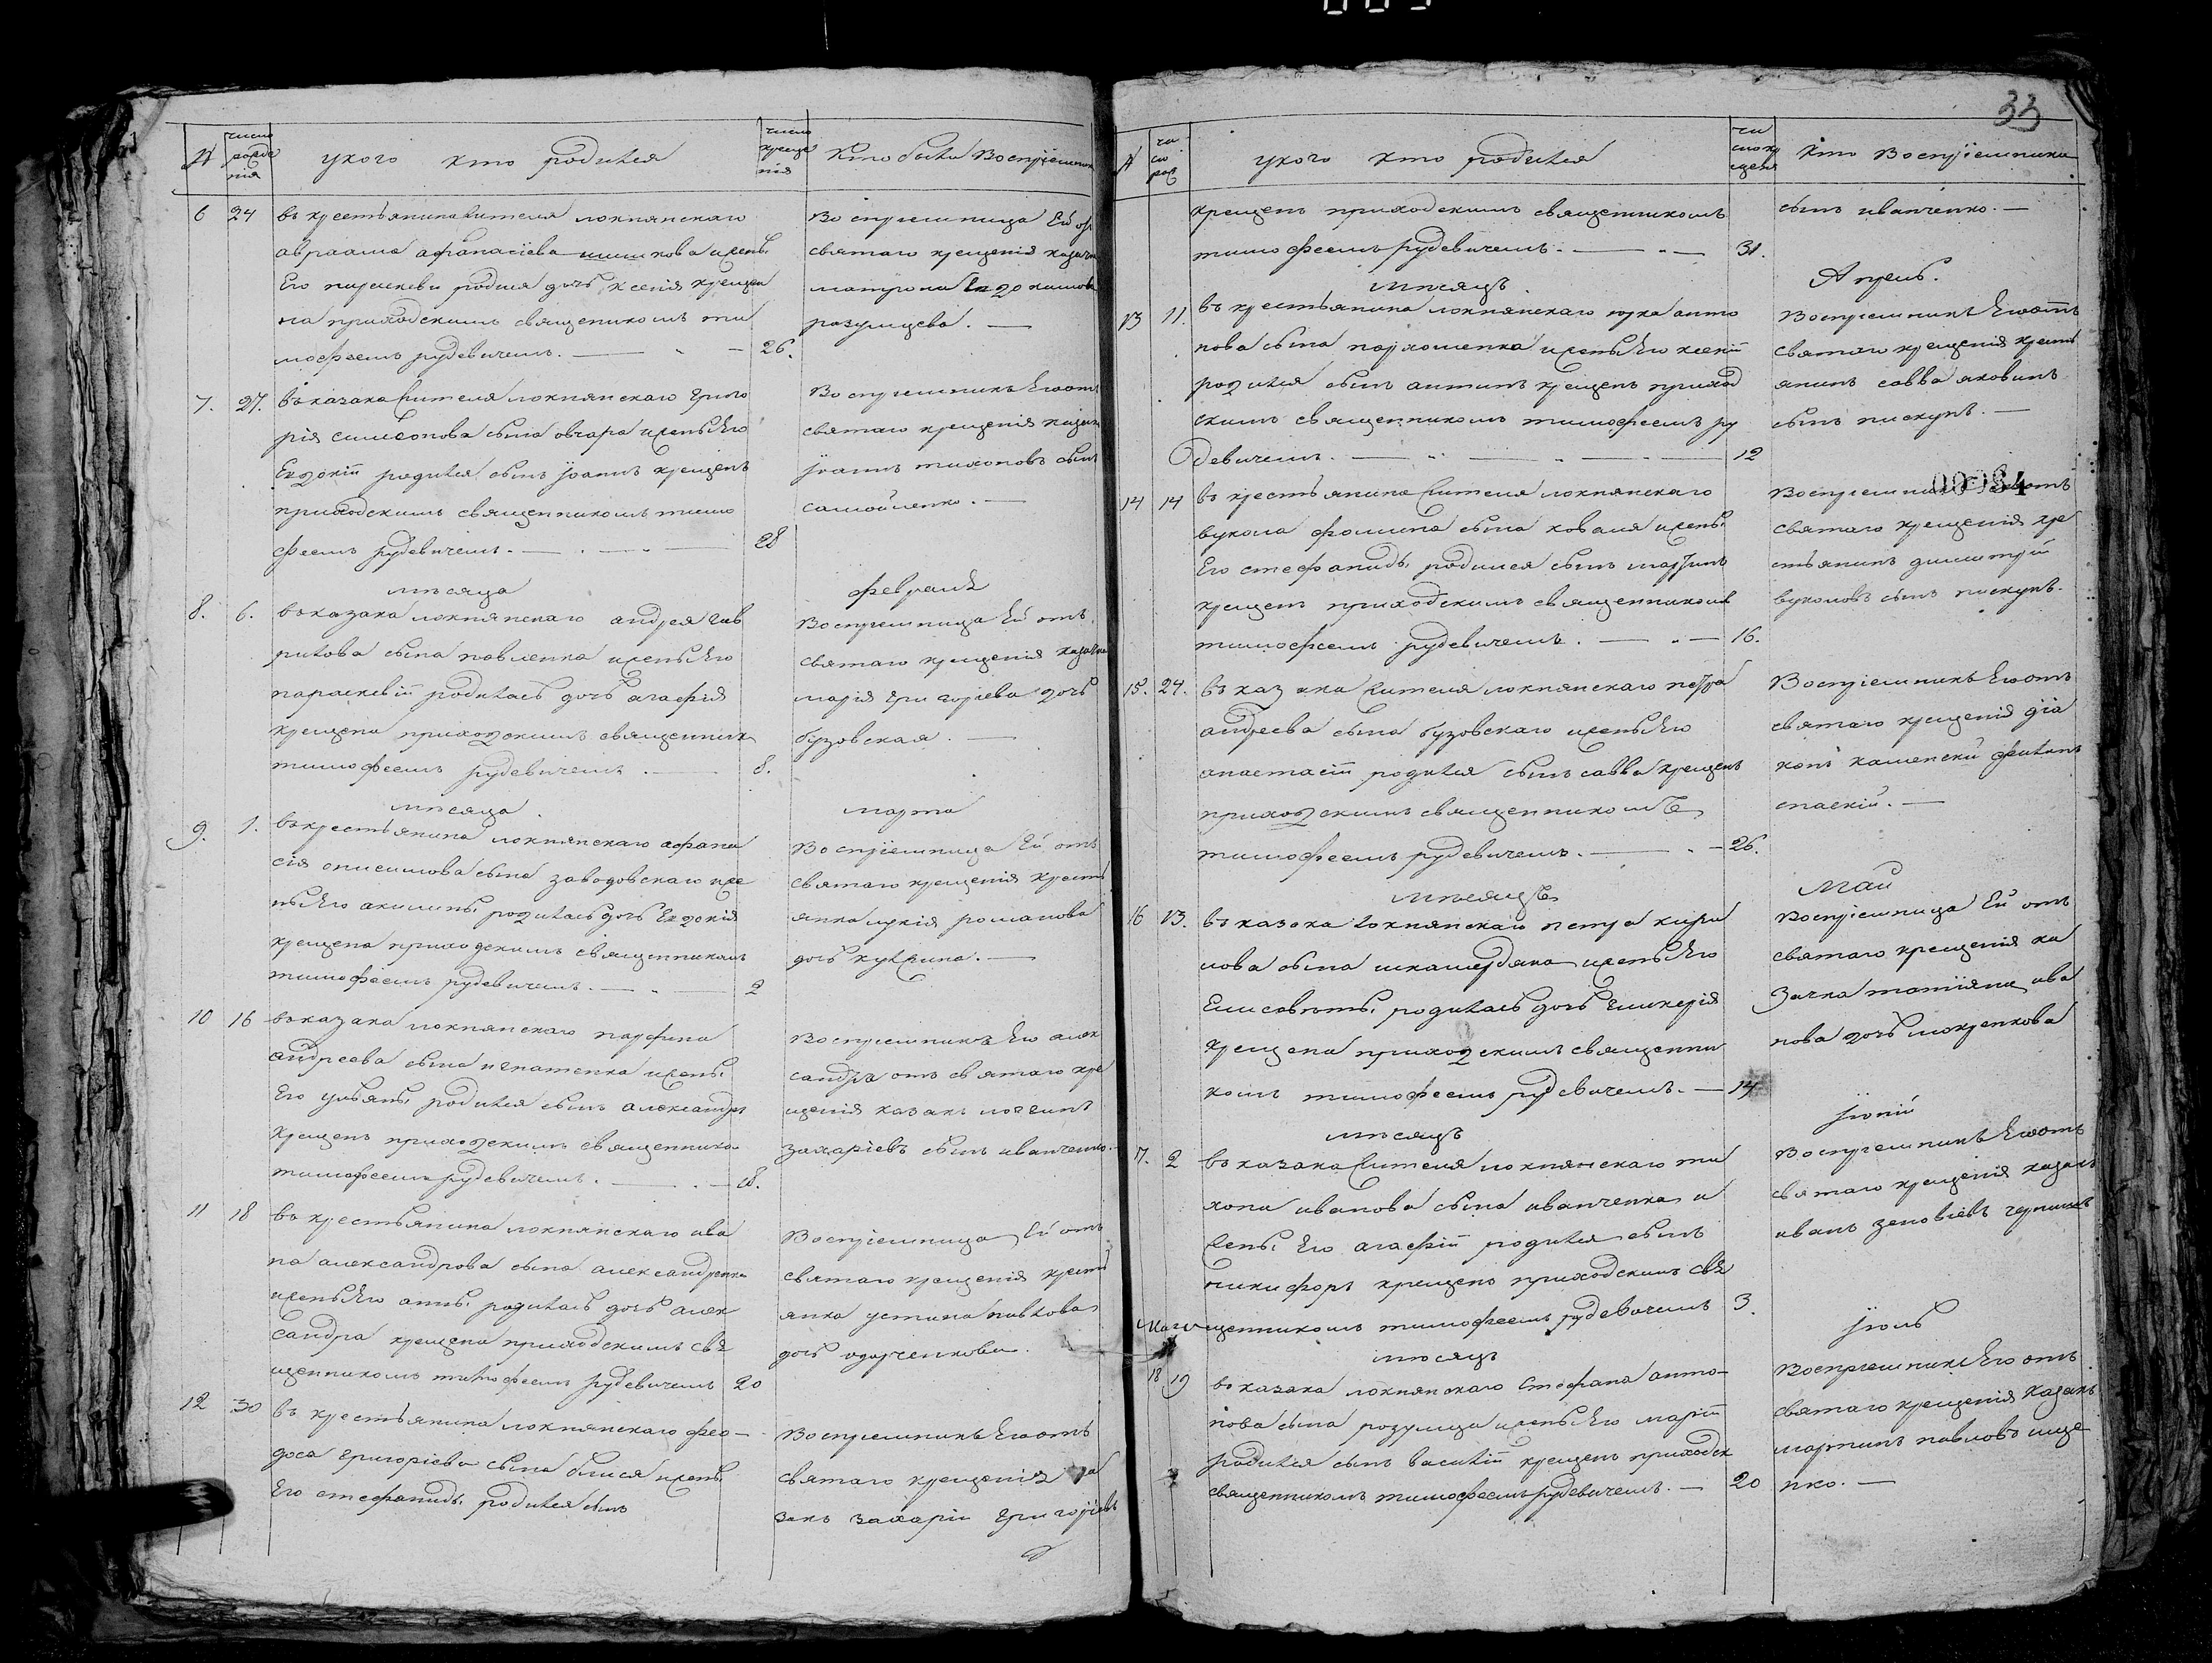 № число рожде нія укого кто родился число креще нія кто были Воспріемник
6 24 въ крестьянина жителя локнянскаго
авраама афанасіева шишкова и жены
Его параскеви родися дочь ксенія креще
на приходскимъ священникомъ ти
мофеемъ рудевичемъ. 26.
Воспріемница Ей от
святаго крещенія казачка
матрона
разумцева.
7. 27. въ казака жителя локнянскаго григо
рія симеонова сына овчара и жены Его
Евдокіи родился сынъ Іоанъ крещенъ
приходскимъ священникомъ тимо
феемъ рудевичемъ. 28
Воспріемникъ Его отъ
святаго крещенія казакъ
Іоанъ тихоновъ сынъ
самойленко.
мѣсяца февраля
8. 6. въ казака локнянскаго андрея гав
рилова сына павленка и жены Его
параскевіи родилась дочь агафія
крещена приходскимъ священник
тимофеемъ рудевичемъ. 8.
Воспріемница Ей отъ
святаго крещенія казачка
марія григоріева дочь
бузовская.
мѣсяца марта
9. 1. въ крестьянина локнянскаго афана
сія онисимова сына заводовскаго и же
ны Его акилины родилась дочь Евдокія
крещена приходскимъ священникомъ
тимофеемъ рудевичемъ. 2
Воспріемница Ей отъ
святаго крещенія крестья
янка лукія романова
дочь
10 16 въ казака локнянскаго парфена
андреева сына игнатенка и жены
Его ульяны родился сынъ александръ
крещенъ приходскимъ священнико
тимофеемъ рудевичемъ. 18.
Воспріемникъ Его алек
сандра отъ святаго кре
щенія казакъ логвинъ
захаріевъ сынъ иванченко.
11 18 въ крестьянина локнянскаго ива
на александрова сына александренка
и жены Его анны родилась дочь алек
сандра крещена приходскимъ свя
щенникомъ тимофеемъ рудевичемъ 20
Воспріемница Ей отъ
святаго крещенія кресть
янка устина павлова
дочь одарченкова.
12 30 въ крестьянина локнянскаго фео-
доса григоріева сына и жены
Его стефаниды родился сынъ
Воспріемникъ Его отъ
святаго крещенія ка
закъ захарій григоріевъ
33
№ чи сло рож укого кто родился чи сло кр щенія кто Воспріемники
крещенъ приходскимъ священникомъ
тимофеемъ рудевичемъ. 31.
сынъ иванченко.
мѣсяцъ Апрель.
13 11. въ крестьянина локнянскаго луки анто
нова сына пархоменка и жены Его ксеніи
родился сынъ антипъ крещенъ приход
скимъ священникомъ тимофеемъ ру
девичемъ. 12
Воспріемникъ Его отъ
святаго крещенія кресть
янинъ савва яковинъ
сынъ пискунъ.
00034
14 14 въ крестьянина жителя локнянскаго
вукола фомина сына коваля и жены
Его стефаниды родился сынъ мартинъ
крещенъ приходскимъ священникомъ
тимофеемъ рудевичемъ. 16.
Воспріемникъ Его отъ
святаго крещенія кре
стьянинъ димитрій
вуколовъ сынъ пискунъ.
15. 24. въ казака жителя локнянскаго петра
андреева сына бузовскаго и жены Его
анастасіи родился сынъ савва крещенъ
приходскимъ священникомъ
тимофеемъ рудевичемъ. 26.
Воспріемникъ Его отъ
святаго крещенія діа
конъ каменскій филипъ
спаскій.
мѣсяцъ май
16 13. въ казака локнянскаго петра кири
лова сына шкамердяка и жены Его
Елисаветы родилась дочь гликерія
крещена приходскимъ священни
комъ тимофеемъ рудевичемъ. 14
Воспріемница Ей отъ
святаго крещенія ка
зачка татіяна ива
нова дочь мокренкова
мѣсяцъ Іюній
17. 2 въ казака жителя локнянскаго ти
хона иванова сына иванченка и
жены Его агафіи родился сынъ
никифоръ крещенъ приходскимъ свя
щенникомъ тимофеемъ рудевичемъ 3.
Воспріемникъ Его отъ
святаго крещенія казакъ
иванъ зеновіевъ
мѣсяцъ Іюль
18 19 въ казака локнянскаго Стефана анто-
нова сына розумца и жены Его маріи
родился сынъ василій крещенъ приходск
священникомъ тимофеемъ рудевичемъ. 20
Воспріемникъ Его отъ
святаго крещенія казакъ
мартинъ павловъ ище
нко.